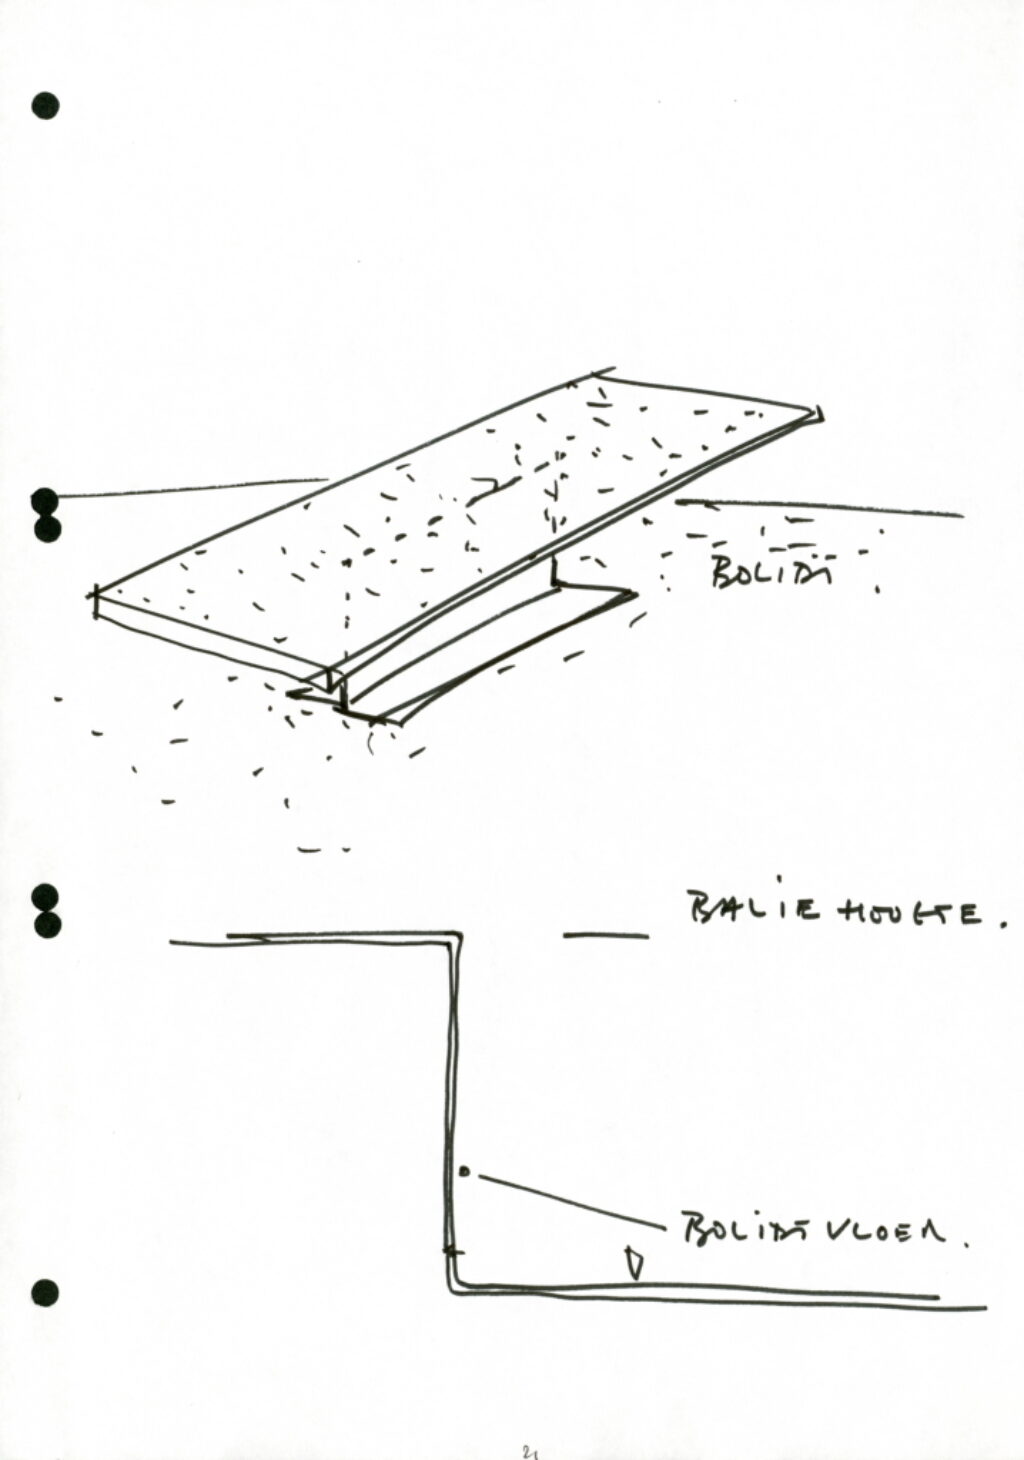 BOLIDT
BALIE HOOGTE.
BOLIDT VLOER.
21